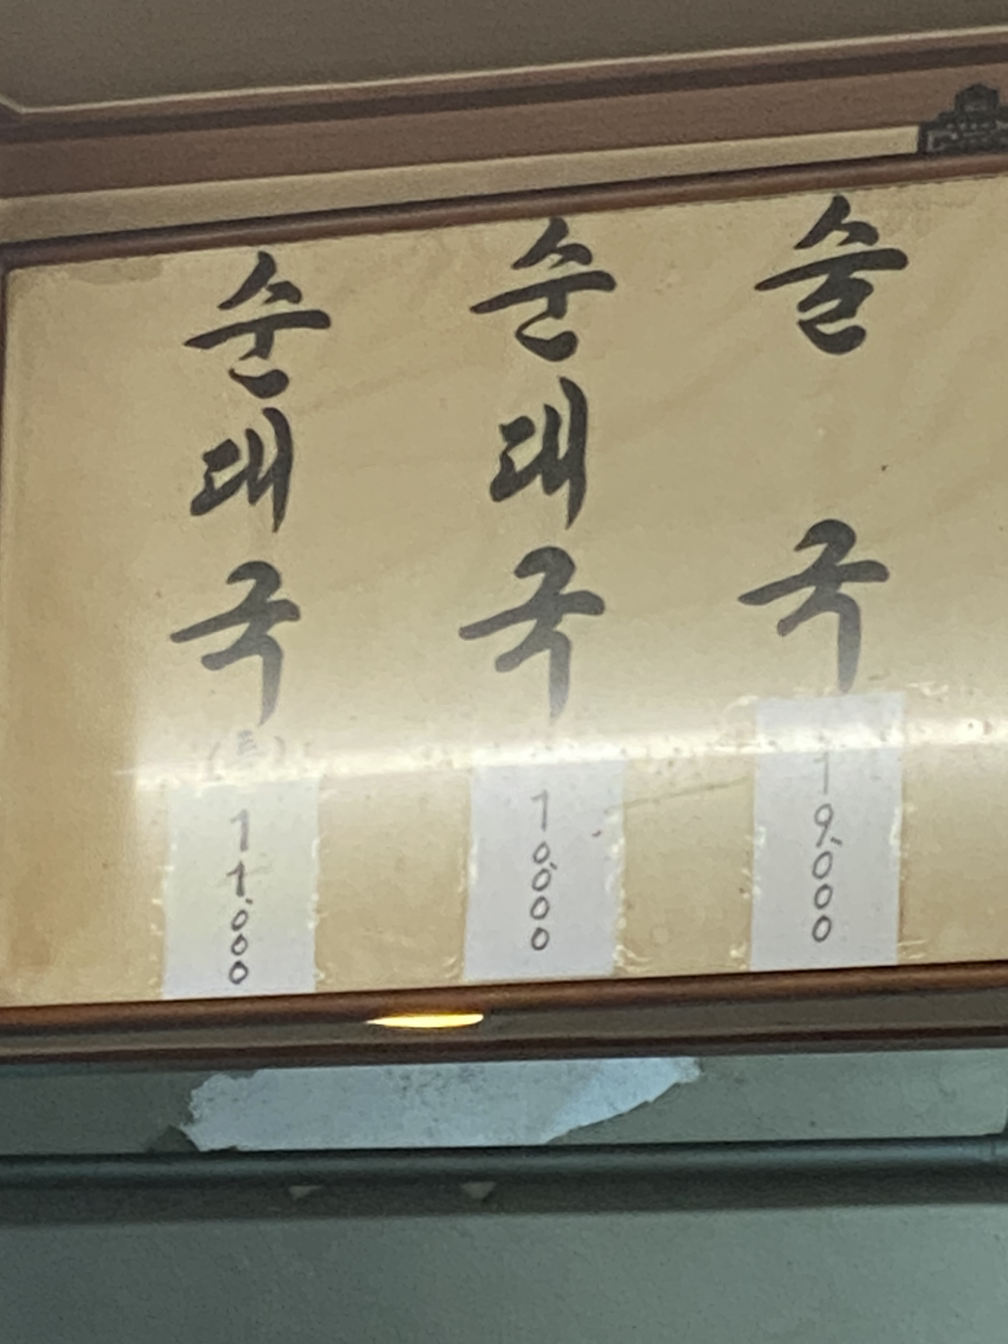 순대국
(특)
11.000
순대국
10.000
술국
19.000